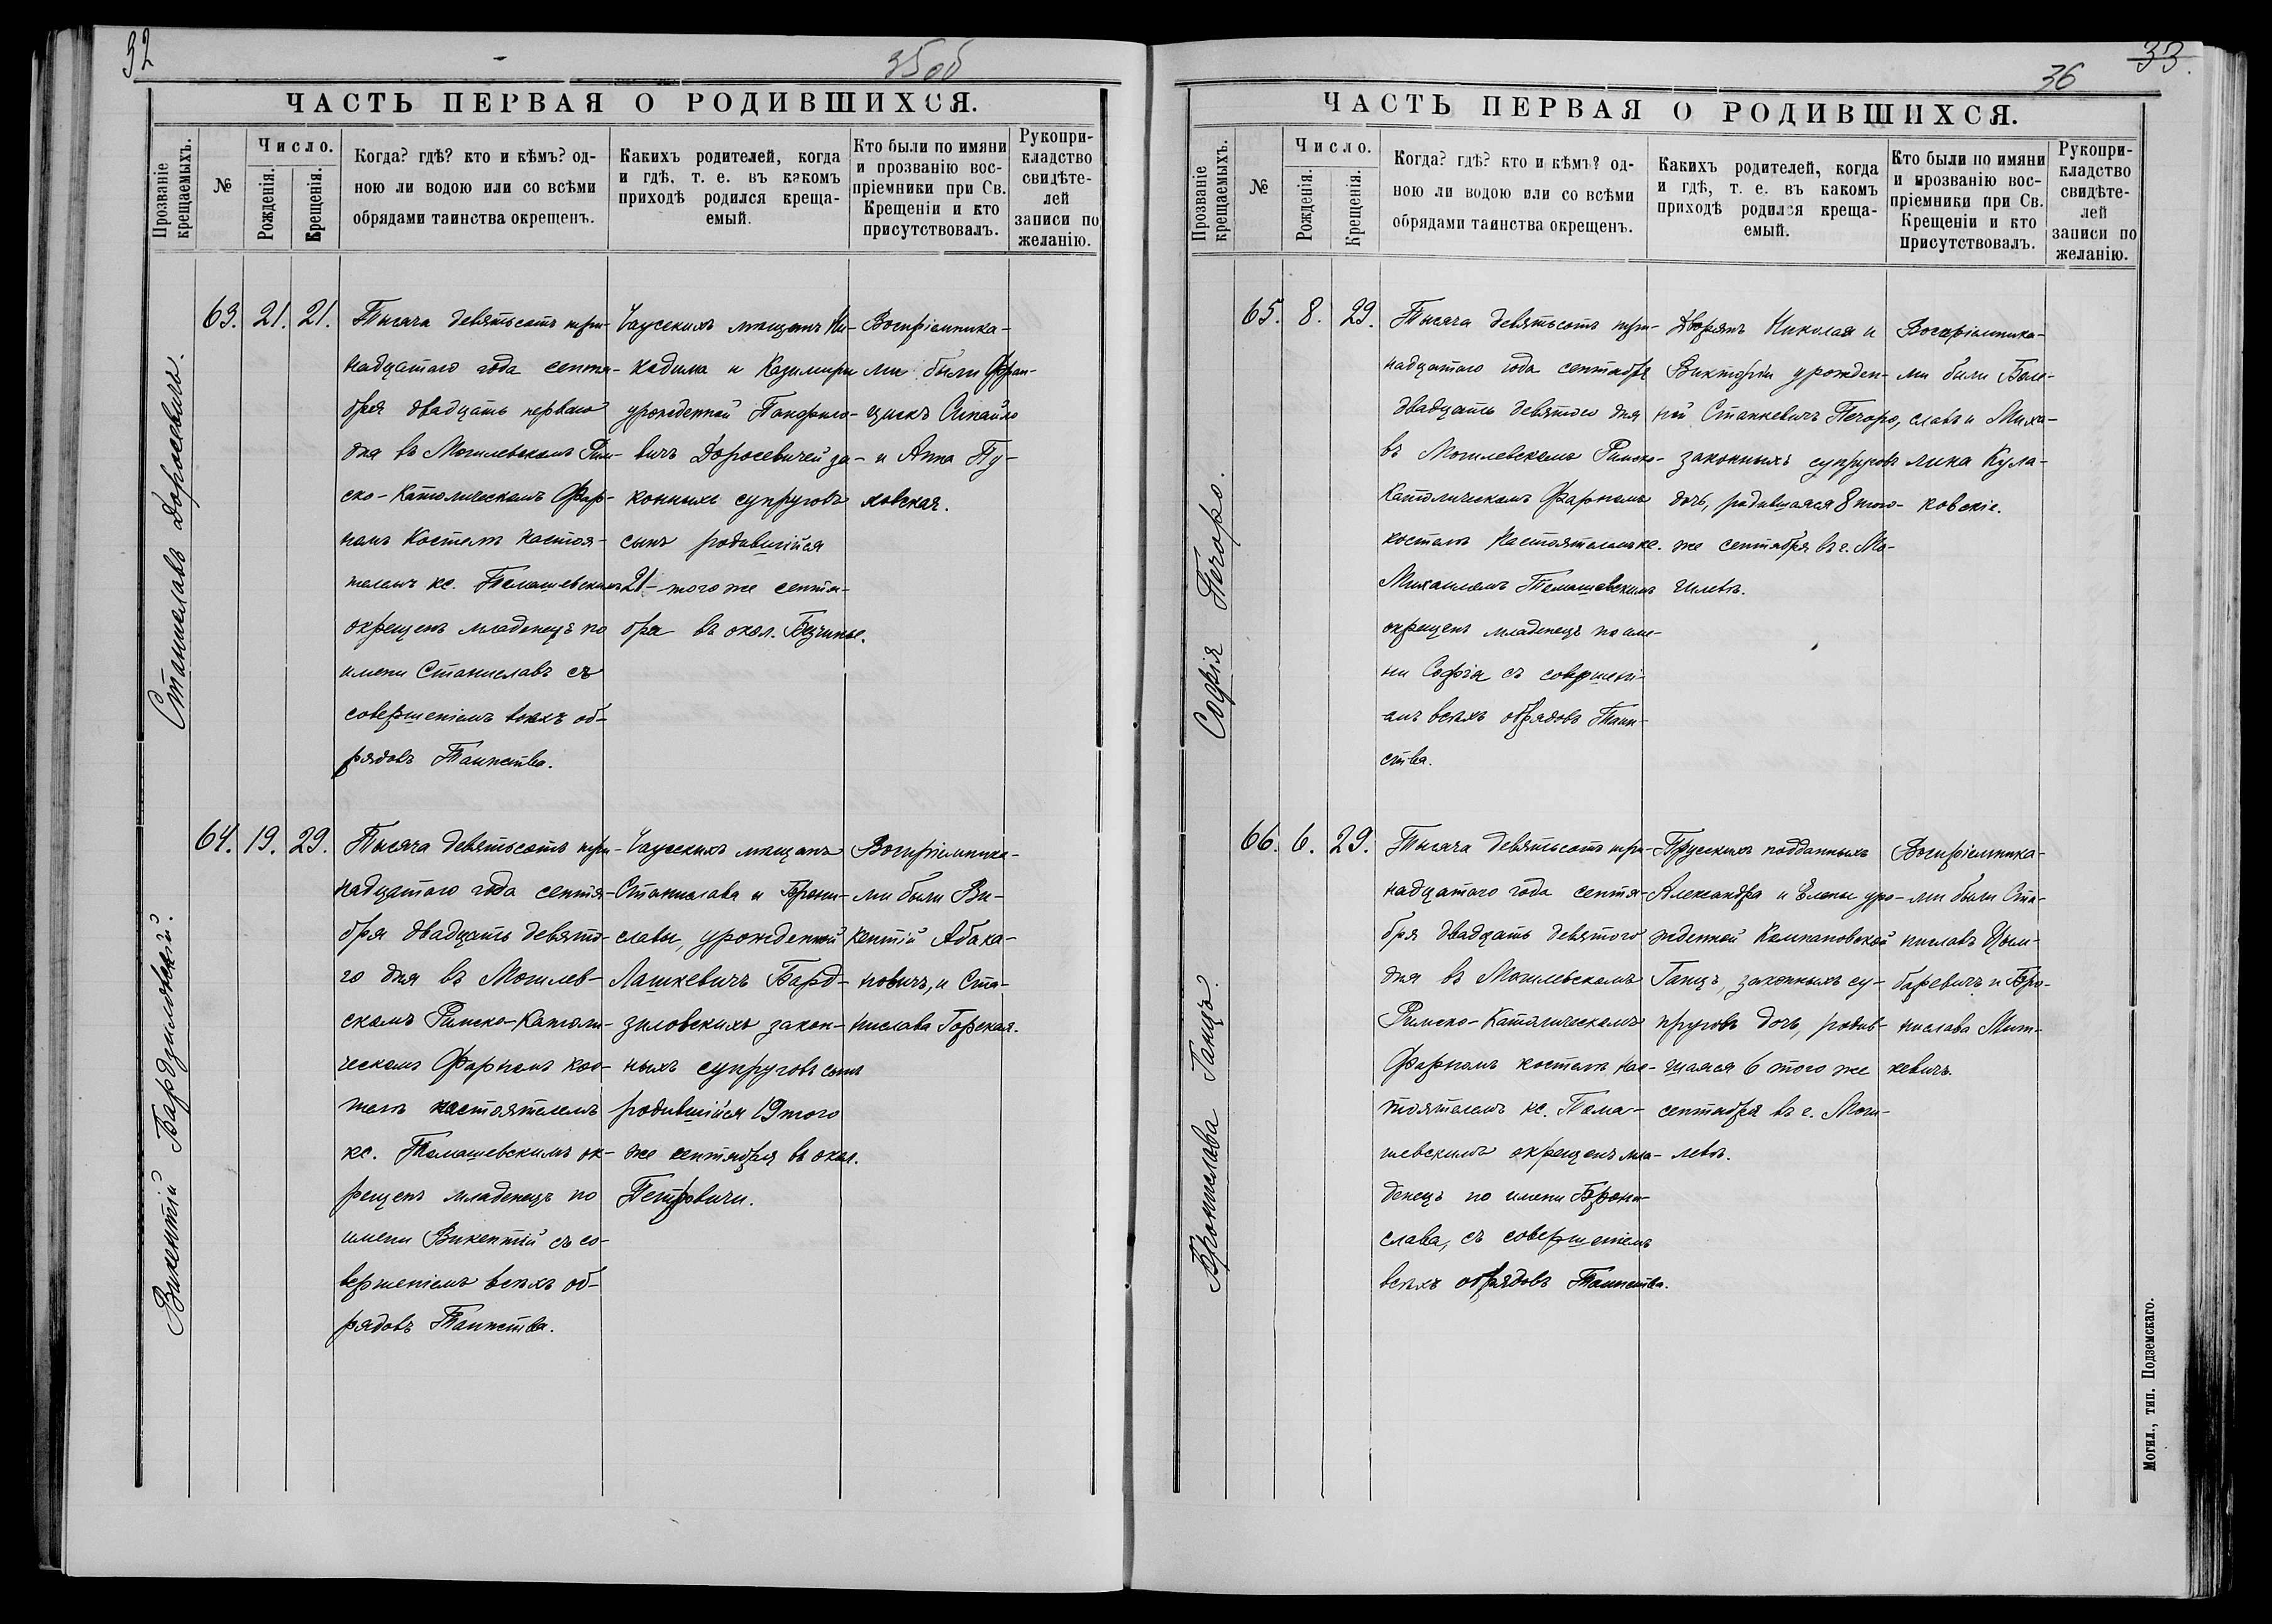 32
35 об
ЧАСТЬ ПЕРВАЯ О РОДИВШИХСЯ.
Прозваніе крещаемыхъ.
№
Число.
Рожденія.
Крещенія.
Когда? гдѣ? кто и кѣмъ? од-
ною ли водою или со всѣми
обрядами таинства окрещенъ.
Какихъ родителей, когда
и гдѣ, т. е. въ какомъ
приходѣ родился креща-
емый.
Кто были по имяни
и прозванію вос-
пріемники при Св.
Крещеніи и кто
присутствовалъ.
Рукопри-
кладство
свидѣте-
лей
записи по
желанію.
Станиславъ Доросевичъ.
63. 21. 21.
Тысяча девятьсотъ три-
надцатаго года сентя-
бря двадцать перваго
дня въ Могилевскомъ Рим-
ско-Католическомъ Фар-
номъ Костелѣ настоя-
телемъ кс. Томашевскимъ
окрещенъ младенецъ по
имени Станиславъ съ
совершеніемъ всѣхъ об-
рядовъ Таинства.
Чаусскихъ мѣщанъ Ни-
кодима и Казимиры
урожденной Панфило-
вичъ Доросевичей за-
конныхъ супруговъ
сынъ родившійся
21-того же сентя-
бря въ окол.
Воспріемника-
ми были Фран-
цискъ
и Анна Пу-
ховская.
Викентій Бардзиловскій.
64. 19. 29.
Тысяча девятьсотъ три-
надцатаго года сентя-
бря двадцать девято-
го дня въ Могилев-
скомъ Римско-Католи-
ческомъ Фарномъ Кос-
телѣ настоятелемъ
кс. Томашевскимъ ок-
рещенъ младенецъ по
имени Викентій съ со-
вершеніемъ всѣхъ об-
рядовъ Таинства.
Чаусскихъ мѣщанъ
Станислава и Брони-
славы, урожденной
Лашкевичъ Бард-
зиловскихъ закон-
ныхъ супруговъ сынъ
родившійся 19 того
же сентября въ окол.
Петровичи.
Воспріемника-
ми были Ви-
кентій Абака-
новичъ, и Ста-
нислава Горская.
33.
36
ЧАСТЬ ПЕРВАЯ О РОДИВШИХСЯ.
Прозваніе крещаемыхъ.
№
Число.
Рожденія.
Крещенія.
Когда? гдѣ? кто и кѣмъ? од-
ною ли водою или со всѣми
обрядами таинства окрещенъ.
Какихъ родителей, когда
и гдѣ, т. е. въ какомъ
приходѣ родился креща-
емый.
Кто были по имяни
и прозванію вос-
пріемники при Св.
Крещеніи и кто
присутствовалъ.
Рукопри-
кладство
свидѣте-
лей
записи по
желанію.
Софія Печоро.
65. 8. 29.
Тысяча девятьсотъ три-
надцатаго года сентября
двадцать девятого дня
въ Могилевскомъ Римско-
Католическомъ Фарномъ
костелѣ Настоятелемъ кс.
Михаиломъ Томашевскимъ
окрещенъ младенецъ по име-
ни Софія съ совершені-
емъ всѣхъ обрядовъ Таин-
ства.
Дворянъ Николая и
Викторіи урожден-
ной Станкевичъ Печоро,
законныхъ супруговъ
дочь, родившаяся 8 того-
же сентября въ г. Мо-
гилевѣ.
Воспріемника-
ми были Боле-
славъ и Миха-
лина Кула-
ковскіе.
Бронислава Ганцъ.
66. 6. 29.
Тысяча девятьсотъ три-
надцатаго года сентя-
бря двадцать девятого
дня въ Могилевскомъ
Римско-Католическомъ
Фарномъ костелѣ нас-
тоятелемъ кс. Тома-
шевскимъ окрещенъ мла-
денецъ по имени Брони-
слава, съ совершеніемъ
всѣхъ обрядовъ Таинства.
Прусскихъ подданныхъ
Александра и Елены уро-
жденной Компановской
Ганцъ, законныхъ су-
пруговъ дочь, родив-
шаяся 6 того же
сентября въ г. Моги-
левѣ.
Воспріемника-
ми были Ста-
ниславъ Цым-
баревичъ и Бро-
нислава Мит-
кевичъ.
Могил., тип. Подземскаго.